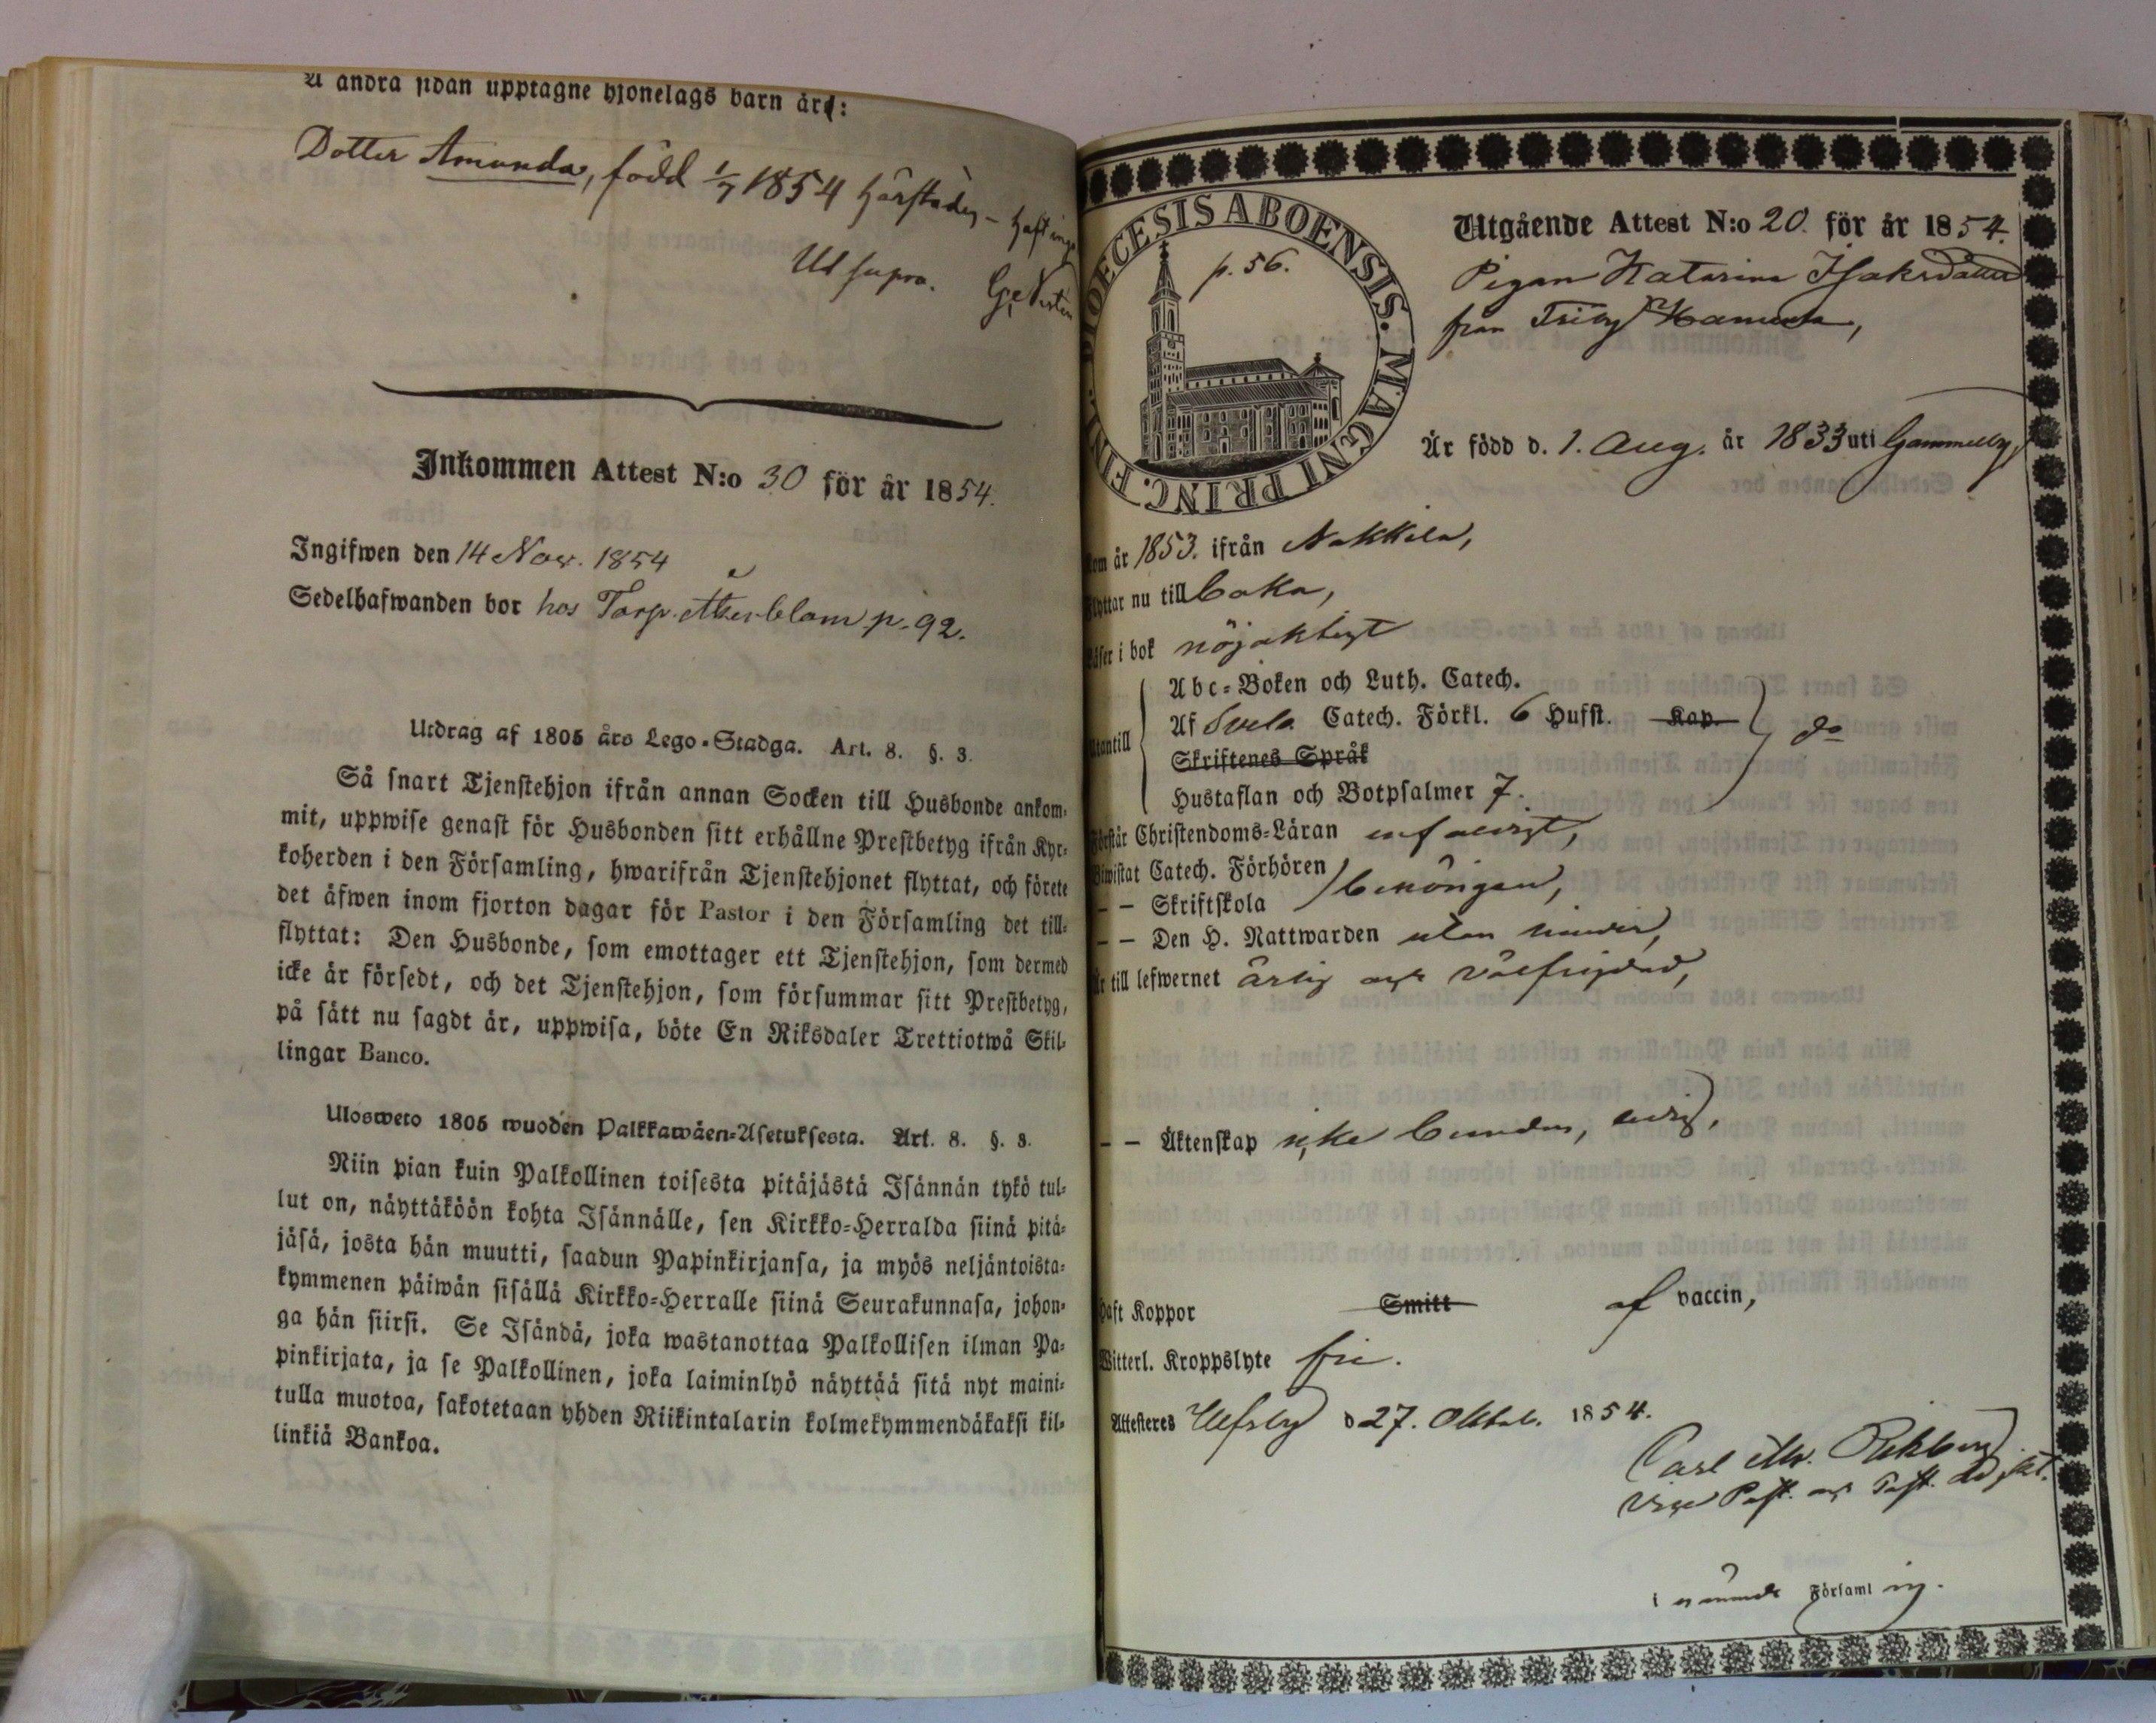 A andra sidan upptagne hjonelags barn äro:
Dotter Amanda, född 1/7 1854 härstädes – haft
Ut supra.
Inkommen Attest N:o 30 för år 1854.
Ingifwen den 14 Nov. 1854
Sedelhafwanden bor hos Torp. Åkerblom p. 92.
Utdrag af 1805 års Lego-Stadga. Art. 8. §. 3.
Så snart Tjenstehjon ifrån annan Socken till Husbonde ankom-
mit, uppwise genast för Husbonden sitt erhållne Prestbetyg ifrån Kyr-
koherden i den Församling, hwarifrån Tjenstehjonet flyttat, och förete
det äfwen inom fjorton dagar för Pastor i den Församling det till-
flyttat: Den Husbonde, som emottager ett Tjenstehjon, som dermed
icke är försedt, och det Tjenstehjon, som försummar sitt Prestbetyg,
på sätt nu sagdt är, uppwisa, böte En Riksdaler Trettiotwå Skil-
lingar Banco.
Ulosweto 1805 wuoden Palkkawäen-Asetuksesta. Art. 8. §. 3.
Niin pian kuin Palkollinen toisesta pitäjästä Isännän tykö tul-
lut on, näyttäköön kohta Isännälle, sen Kirkko-Herralda siinä pitä-
jäsä, josta hän muutti, saadun Papinkirjansa, ja myös neljäntoista-
kymmenen päiwän sisällä Kirkko-Herralle siinä Seurakunnasa, johon-
ga hän siirsi. Se Isändä, joka wastanottaa Palkollisen ilman Pa-
pinkirjata, ja se Palkollinen, joka laiminlyö näyttää sitä nyt maini-
tulla muotoa, sakotetaan yhden Riikintalarin kolmekymmendäkaksi kil-
linkiä Bankoa.
DIOECESIS ABOENSIS. MAGNI PRINC. FINL.
p. 56.
Utgående Attest N:o 20. för år 1854.
Pigan Katarina Isaksdotter
från Friby
Är född d. 1. Aug. år 1833 uti Gammelby,
Kom år 1853. ifrån Nakkila,
Flyttar nu tillbaka,
Läser i bok nöjaktigt
Utantill
Abc-Boken och Luth. Catech.
Af Svebs. Catech. Förkl. 6 Hufst. Kap.
do
Skriftenes Språk
Hustaflan och Botpsalmer 7.
Förstår Christendoms-Läran enfaldigt,
Biwistat Catech. Förhören
– – Skriftskola
behörigen,
– – Den H. Nattwarden utan hinder,
Är till lefwernet ärlig och välfrejdad,
– – Äktenskap icke bunden, ledig,
Haft Koppor Smitt af vaccin,
Witterl. Kroppslyte fri.
Attesteras Ulfsby d 27. Oktob. 1854.
Carl
Vice Past.
i nämnde Församling.